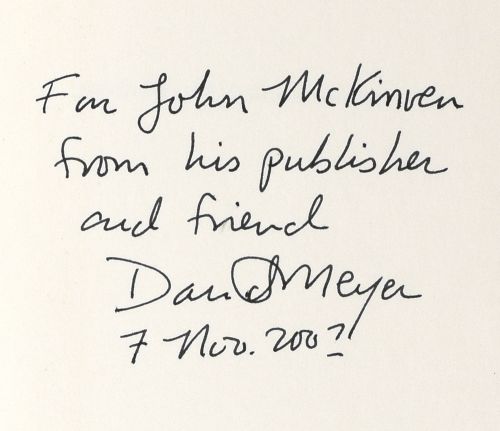 For John McKinven
from his publisher
and friend
David Meyer
7 Nov.